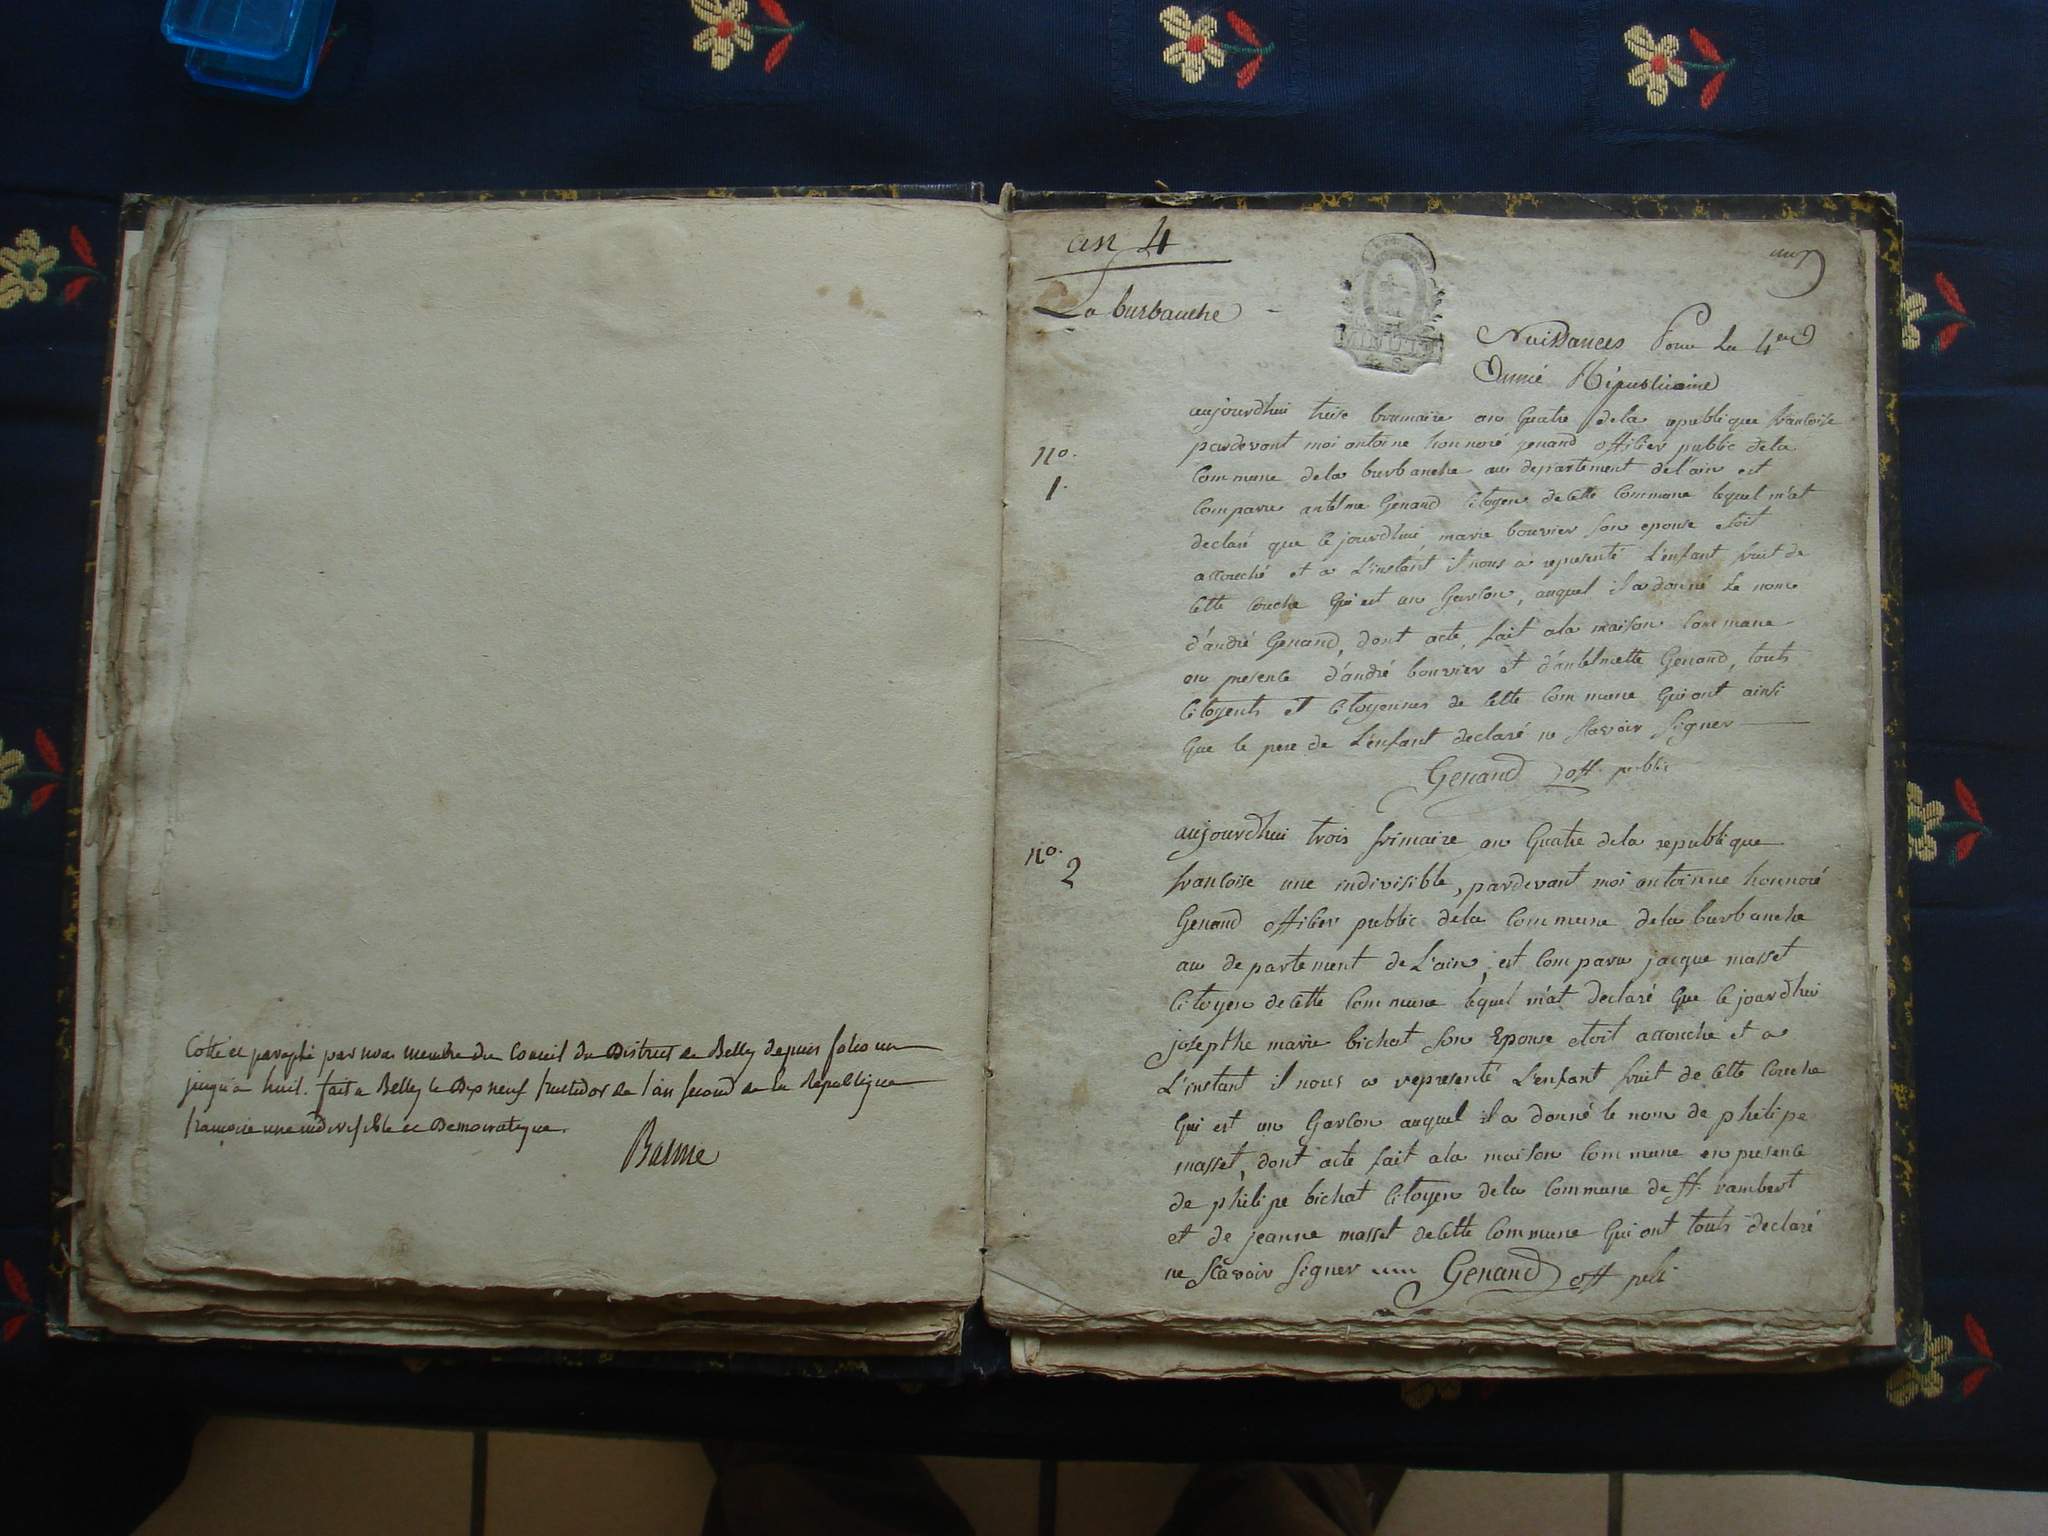 Cotté et paraphé par nous membre du Conseil du District de Belley depuis folio un
jusqu'a huit. fait a Belley le Dix neuf fructidor de l'an second de la Republique
françoise une indivisible et Democratique.
Balme
an 4
La burbanche
MINUTE
Naissances Pour La 4eme
Année Républicaine
no.
1.
aujourdhui treise brumaire an Quatre dela republique francoise
pardevant moi antoine honnoré genand officier public dela
Commune dela burbanche au departement delain est
Comparu antelme Genand Citoyen decette Commune lequel m'at
declaré que ce jourdhui marie bouvier son epouse etoit
accouché et a L'instant il nous a representé L'enfant fruit de
Cette couche Qui est un Garcon, auquel il a donné Le nom
d'andré Genand, dont acte, fait ala maison Commune
en presence d'andré bouvier et d'antelmette Genand, touts
Citoyents et Citoyennes de Cette Commune Qui ont ainsi
Que le pere de L'enfant declaré ne scavoir signer
Genand off. public
no.
2
aujourdhui trois frimaire an Quatre dela republique
francoise une indivisible, pardevant moi antoinne honnoré
Genand officier public dela Commune dela burbanche
au departement de L'ain, est Comparu jacque masset
Citoyen decette Commune lequel m'at declaré Que ce jourdhui
josepthe marie bichat son Epouse etoit accouché et a
L'instant il nous a representé L'enfant fruit de Cette couche
Qui est un Garcon auquel il a donné le nom de philipe
masset, dont acte fait ala maison Commune en presence
de philipe bichat Citoyen dela Commune de st. rambert
et de jeanne masset decette Commune Qui ont touts declaré
ne scavoir signer Genand off publ